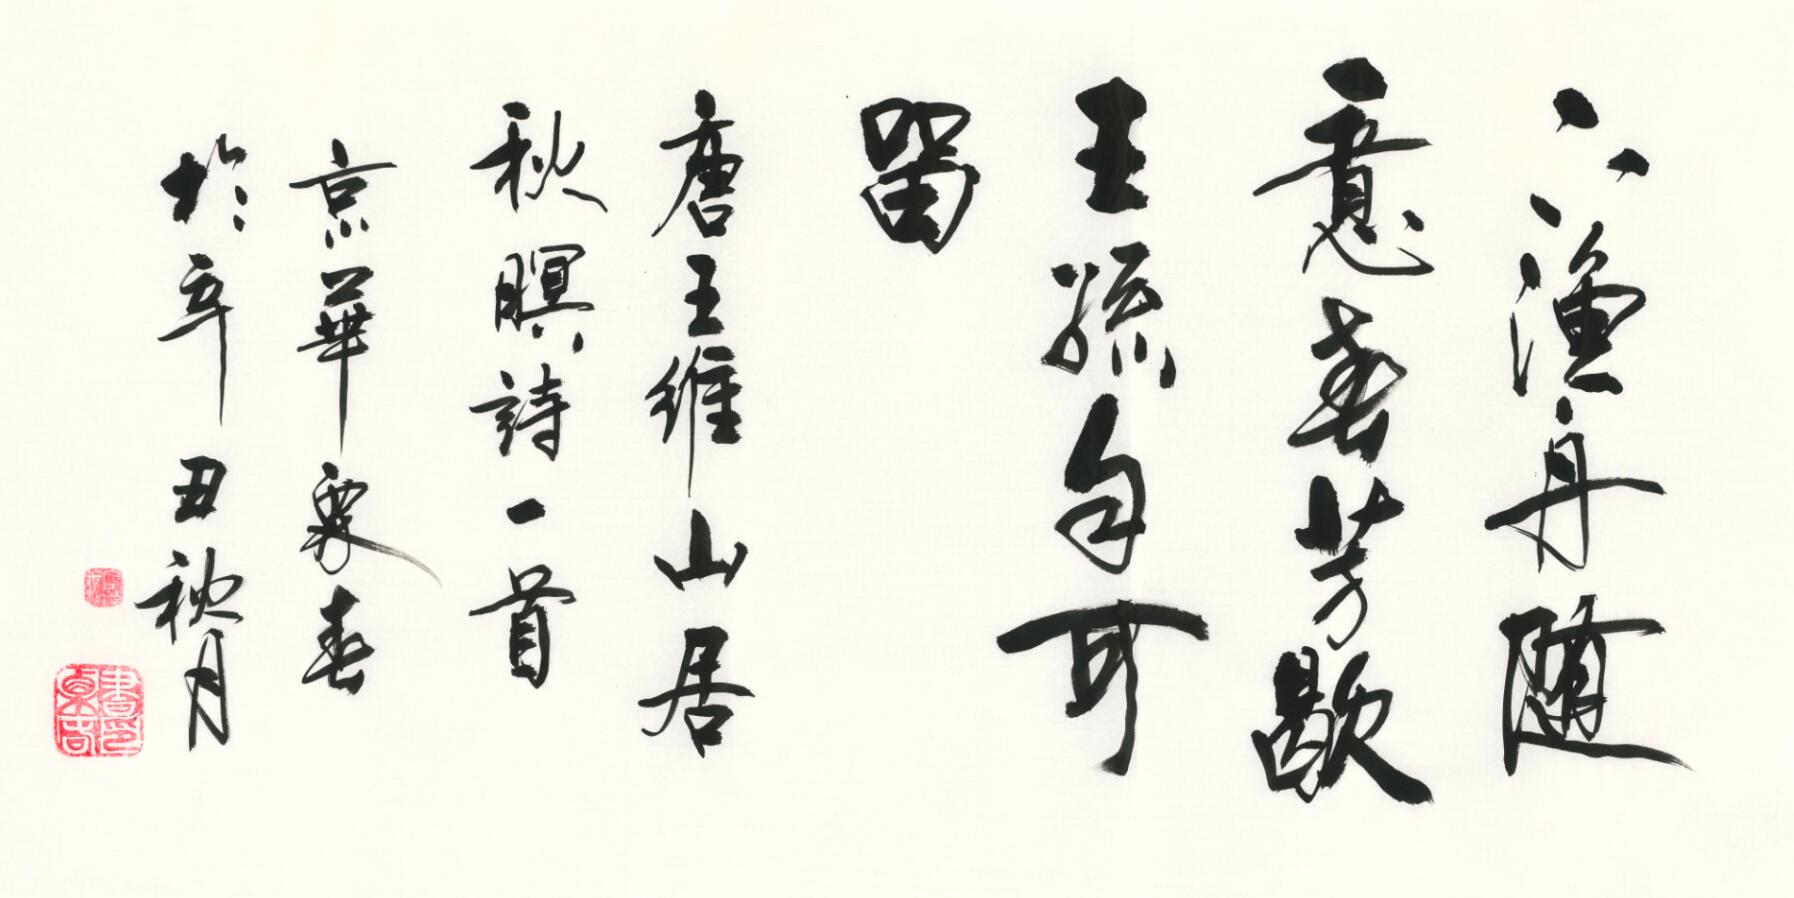 下漁舟隨
意春芳歇
王孫自可
留
唐王維山居
秋暝詩一首
京華春
於辛丑秋月